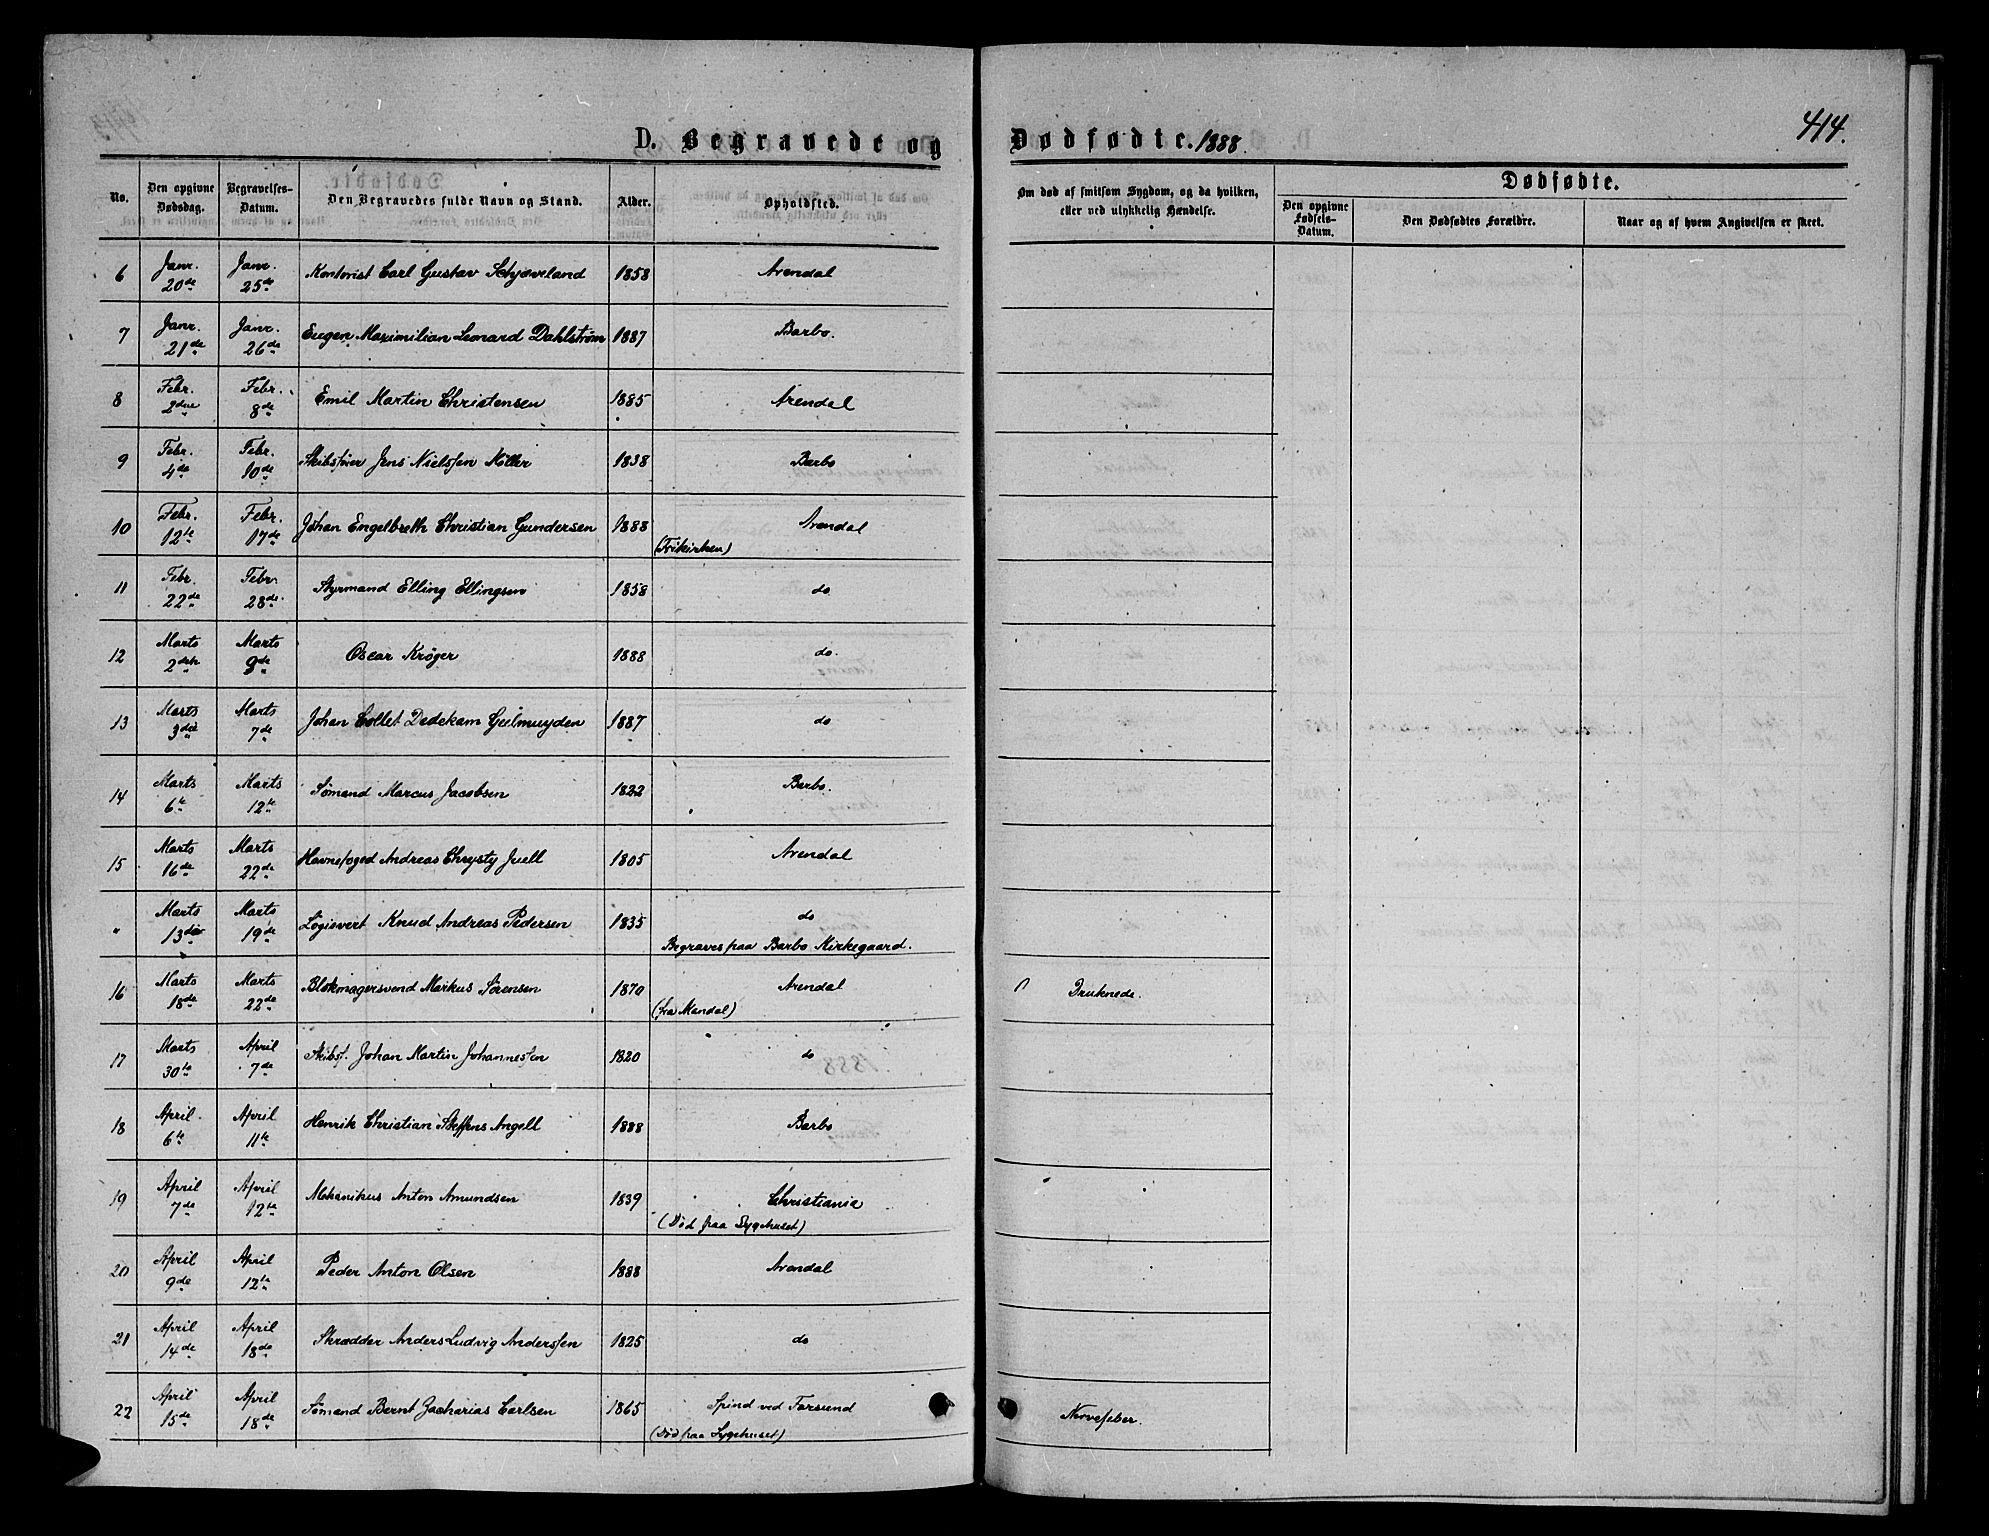 414.
D. Begravede og Dødfødte. 1888
No. Den opgivne Dødsdag. Begravelses-Datum. Den Begravedes fulde Navn og Stand. Alder. Opholdsted. Om død af smitsom Sygdom, og da hvilken, eller ved ulykkelig Hændelse. Dødfødte.
Den opgivne Fødsels-Datum. Den Dødfødtes Forældre. Naar og af hvem Angivelsen er skeet.
6 Janr. 20de Janr. 25de Kontorist Carl Gustav Schjæveland 1858 Arendal
7 Janr. 21de Janr. 26de Eugen Maximilian Leonard Dahlstrøm 1887 Barbo.
8 Febr. 2den Febr. 8de Emil Martin Christensen 1885 Arendal
9 Febr. 4de Febr. 10de Skibsfører Jens Nielsen Møller 1838 Barbo
10 Febr. 12te Febr. 17de Johan Engelbreth Christian Gundersen 1888 Arendal
(Frikirken)
11 Febr. 22de Febr. 28de Styrmand Elling Ellingsen 1858 do
12 Marts 2den Marts 9de Oscar Krøger 1888 do.
13 Marts 3die Marts 7de Johan Collet Dedekam Gulmuyden 1887 do
14 Marts 6te Marts 12te Sømand Marcus Jacobsen 1822 Barbo.
15 Marts 16de Marts 22de Havnefoged Andreas Chrysty Juell 1805 Arendal
" Marts 13de Marts 19de Logievert Knud Andreas Pedersen 1835 do
Begraves paa Barbo Kirkegaard.
16 Marts 18de Marts 22de Blokmagersvend Markus Sørensen 1870 Arendal
(fra Mandal) Druknede.
17 Marts 30te April 7de Skibsf. Johan Martin Johannessen 1820 do
18 April 6te April 11te Henrik Christian Steffens Angell 1888 Barbo
19 April 7de April 12te Mekanikus Anton Amundsen 1839 Christiania
(Død paa Sygehuset)
20 April 9de April 12te Peder Anton Olsen 1888 Arendal
21 April 14de April 18de Skrædder Anders Ludvig Anderssen 1825 do
22 April 15de April 18de Sømand Bernt Zacharias Carlsen 1865 Spind ved Farsund
(Død paa Sygehuset) Nervefeber.